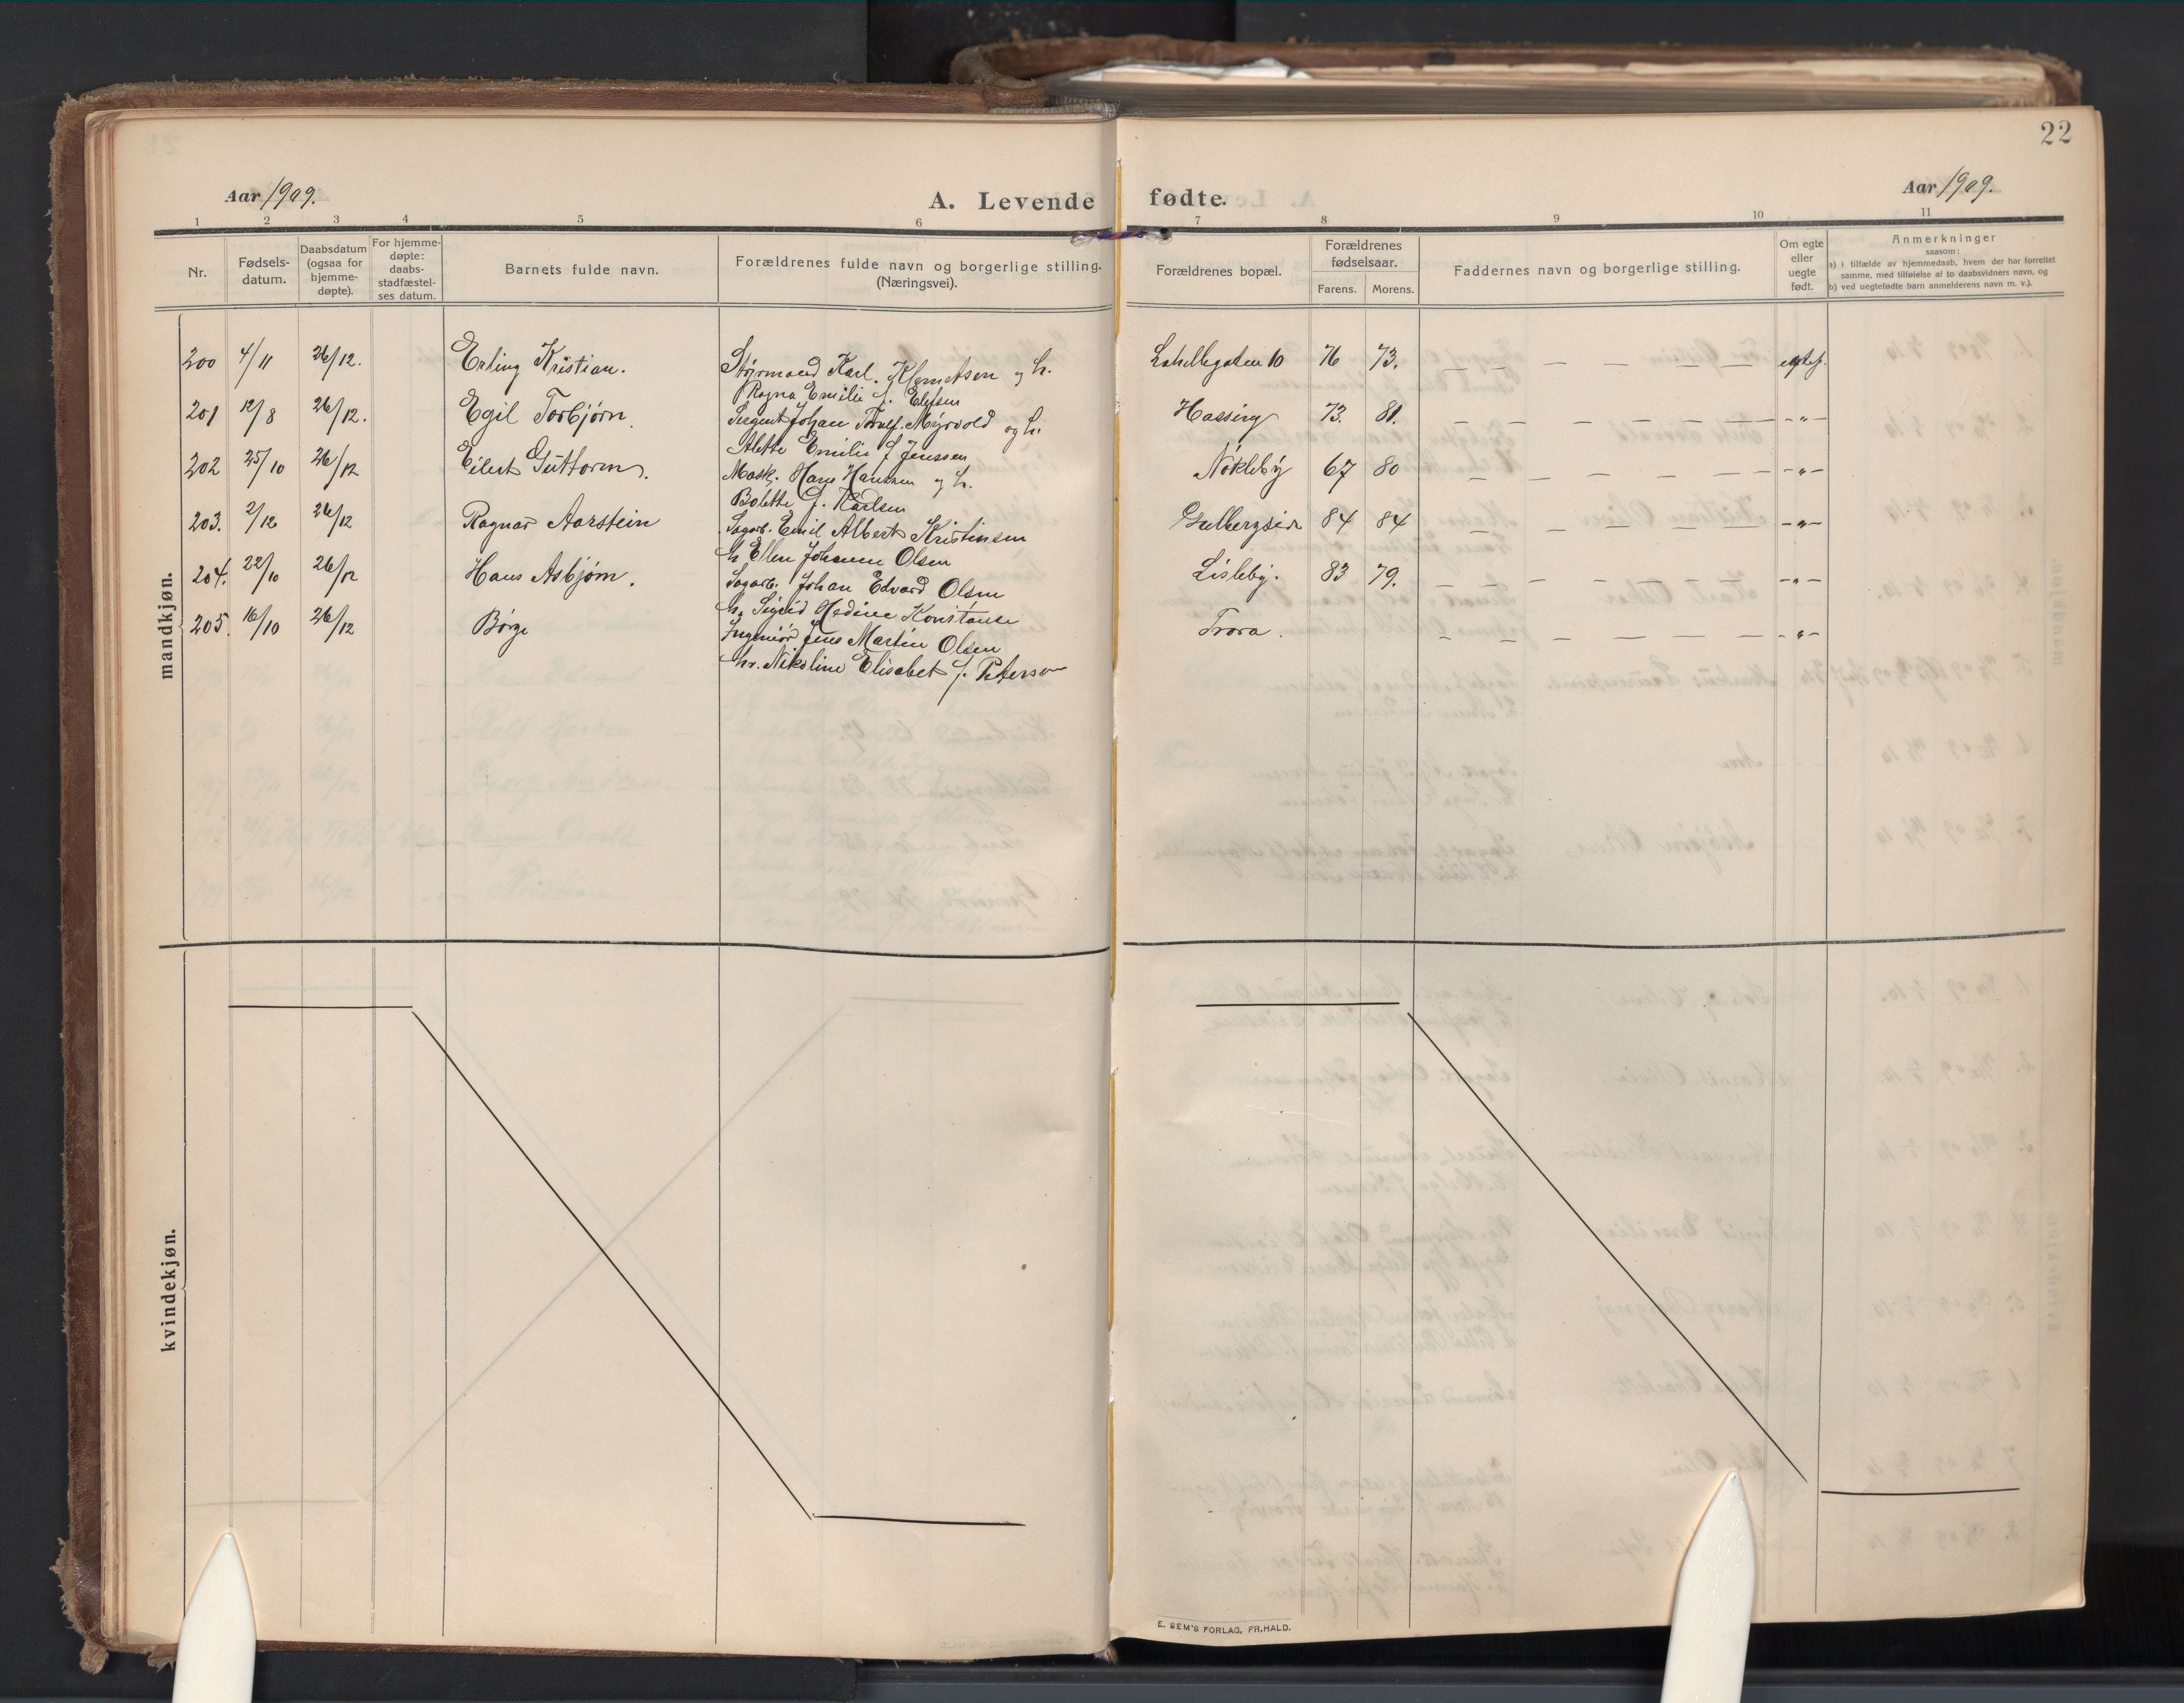 22
Aar 1909.
A. Levende fødte.
Aar 1909.
1 2 3 4 5 6 7 8 9 10 11
Nr.
Fødsels-
datum.
Daabsdatum
(ogsaa for
hjemme-
døpte).
For hjemme-
døpte:
daabs-
stadfæstel-
ses datum.
Barnets fulde navn.
Forældrenes fulde navn og borgerlige stilling.
(Næringsvei).
Forældrenes bopæl.
Forældrenes
fødselsaar.
Farens. Morens.
Faddernes navn og borgerlige stilling.
Om egte
eller
uegte
født.
Anmerkninger
saasom:
a) i tilfælde av hjemmedaab, hvem der har forrettet
samme, med tilføielse af to daabsvidners navn, og
b) ved uegtefødte barn anmelderens navn m. v.).
mandkjøn.
200 4/11 26/12. Erling Kristian. Styrmand Karl. Klemetsen og h. 10 76 73. — — — — — —
Ragna Emilie f.
201 12/8 26/12. Egil Torbjørn. Sergent Johan Myrvold og h. Hassing 73. 81. — — — — — — -"-
Alette Emilie f Jenssen
202 25/10 26/12 Eilert Guttorm. Mask. Hans Hansen og h. Nøkleby 67 80 — — — — — — -"-
Bolette f. Karlsen
203. 2/12 26/12 Ragnar Aarstein Sagarb. Emil Albert Kristinsen 84 84 — — — — — — -"-
h Ellen Johanne Olsen
204. 22/10 26/12 Hans Asbjørn. Sagarb. Johan Edvard Olsen Lisleby. 83 79. — — — — — — -"-
h. Sigrid Hedine Konstanse
205. 16/10 26/12 Børge Ingeniør Jens Martin Olsen Trara. — — — — — — -"-
hr. Nikoline Elisabet f. Petersen
kvindekjøn.
E. SEM'S FORLAG, FR.HALD.